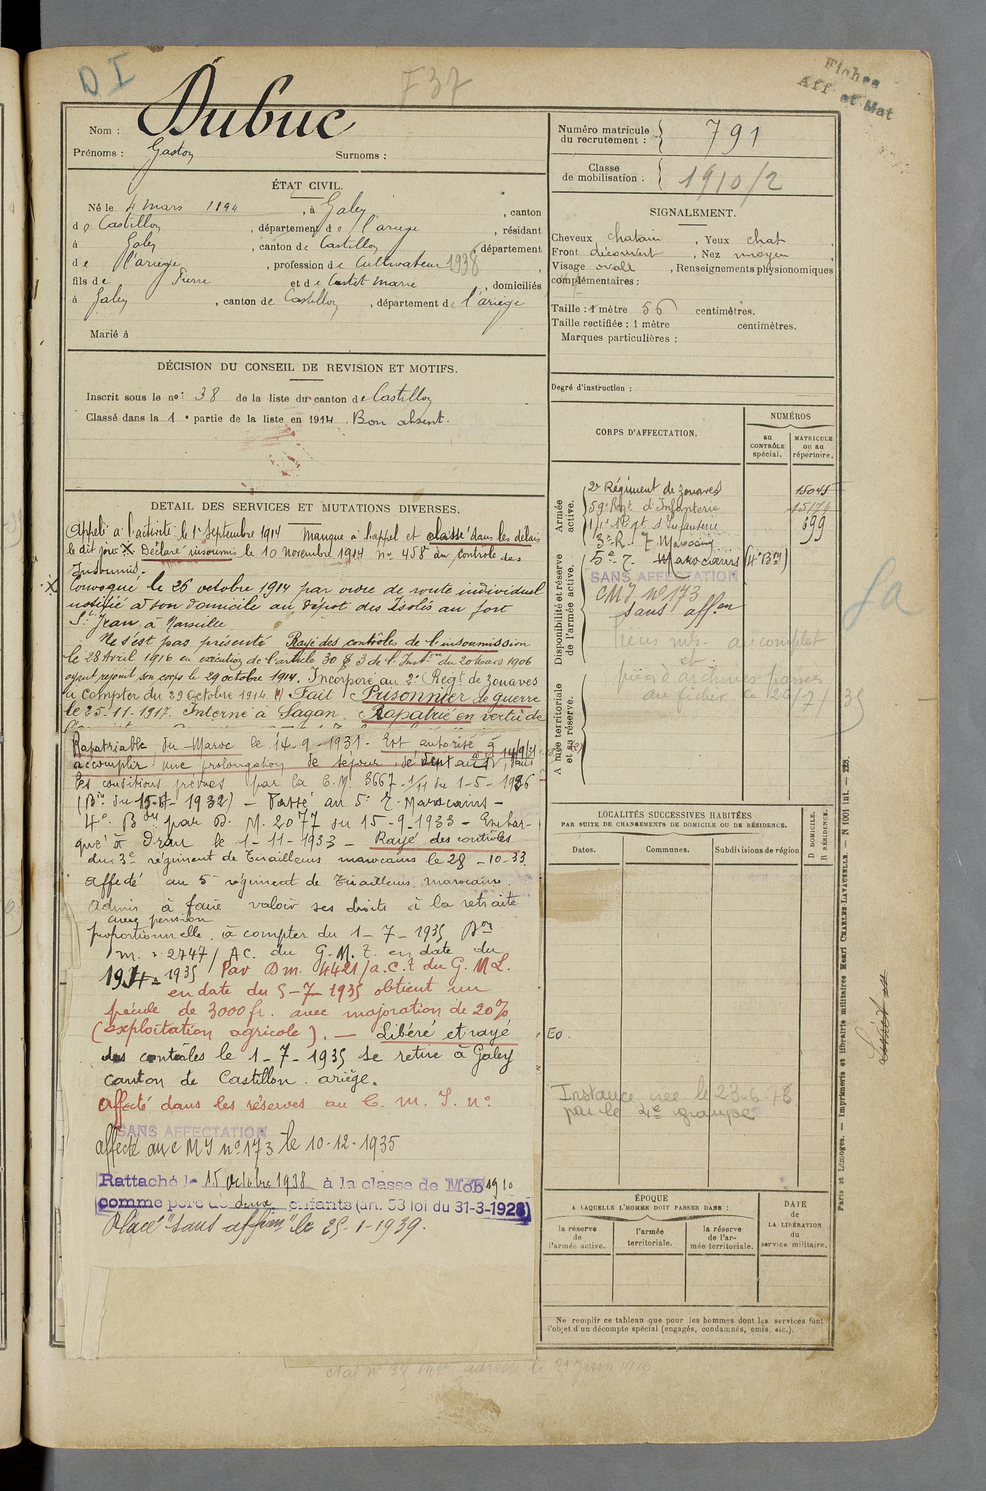 D I
F 37
Fiches
Aff. et Mat
Nom : Dubuc
Prénoms : Gaston Surnoms :
Numéro matricule du recrutement : 791
Classe de mobilisation : 1910/2
ÉTAT CIVIL.
Né le 4 mars 1894, à Galey, canton
de Castillon, département de l'ariège, résidant
à Galey, canton de Castillon, département
de l'ariège, profession de Cultivateur 1938,
fils de Pierre et de Castet Marie, domiciliés
à Galey, canton de Castillon, département de l'ariège
Marié à
SIGNALEMENT.
Cheveux chatain, Yeux chat
Front découvert, Nez moyen
Visage ovale, Renseignements physionomiques
complémentaires :
Taille : 1 mètre 56 centimètres.
Taille rectifiée : 1 mètre centimètres.
Marques particulières :
Degré d'instruction :
DÉCISION DU CONSEIL DE REVISION ET MOTIFS.
Inscrit sous le no : 38 de la liste du canton de Castillon
Classé dans la 1e partie de la liste en 1914. Bon absent.
DÉTAIL DES SERVICES ET MUTATIONS DIVERSES.
Appelé à l'activité le 1er Septembre 1914 Manque à l'appel et classé dans les délais
le dit jour X Déclaré insoumis le 10 novembre 1914 no 458 du controle des
Insoumis.
X Convoqué le 26 octobre 1914 par ordre de route individuel
notifié à son domicile au dépot des Isolés au fort
St Jean à Marseille
Ne s'est pas présenté Rayé des controles de l'insoumission
le 28 Avril 1916 en exécution de l'article 30 § 3 de l'Inston du 20 Mars 1906
ayant rejoint son corps le 29 octobre 1914. Incorporé au 2e Regt de zouaves
à compter du 29 Octobre 1914 Fait Prisonnier de guerre
le 25-11-1917. Interné à Sagan. Rapatrié en vertu de
Rapatriable du Maroc le 14-9-1931. Est autorisé à
accomplir une prolongation de séjour de sept ans, dans
les conditions prévues par la C.M. 3667-1/11 du 1-5-1926
1932) - Passé au 5e T. Marocains -
4e Bon par D. M. 2077 du 15-9-1933 - Embar-
qué à Oran le 1-11-1933 - Rayé des contrôles
du 3e régiment de Tirailleurs marocains le 28-10-33
Affecté au 5e régiment de Tirailleurs marocains.
Admis à faire valoir ses droits à la retraite
avec pension
proportionnelle, à compter du 1-7-1935
m. n. 2747/AC. du G.M.T. en date du
1935 Par Dm. 4421/a.c.t du G. M T.
en date du 5-7-1935 obtient un
pécule de 3000 fr. avec majoration de 20%
(exploitation agricole). - Libéré et rayé
des contrôles le 1-7-1935 se retire à Galey
canton de Castillon. ariège.
Affecté dans les réserves au C. M. I. no
SANS AFFECTATION
affecté au C M I no 173 le 10-12-1935
Rattaché le 15 octobre 1938 à la classe de Mob 1910
comme père de deux enfants (art. 58 loi du 31-3-1928)
Placé "sans affon" le 25-1-1939.
CORPS D'AFFECTATION.
NUMÉROS
au CONTRÔLE spécial.
MATRICULE ou au répertoire.
Armée active.
2e Régiment de zouaves 15045
59e Regt d'Infanterie 15174
Regt d'infanterie 399
3e R. T. Marocain
Disponibilité et réserve de l'armée active.
5e T. Marocains (4e Bon)
SANS AFFECTATION
CMI no 173
Sans affon
Armée territoriale et sa réserve.
LOCALITÉS SUCCESSIVES HABITÉES
PAR SUITE DE CHANGEMENTS DE DOMICILE OU DE RÉSIDENCE.
Dates. Communes. Subdivisions de région
D DOMICILE.
R RÉSIDENCE.
Instance cree le 23-6-78
par le 4e groupe
ÉPOQUE
A LAQUELLE L'HOMME DOIT PASSER DANS :
la réserve de l'armée active.
l'armée territoriale.
la réserve de l'armée territoriale.
DATE de LA LIBÉRATION du service militaire.
Ne remplir ce tableau que pour les hommes dont les services font
l'objet d'un décompte spécial (engagés, condamnés, omis, etc.).
Paris et Limoges. — Imprimerie et librairie militaires Henri CHARLES-LAVAUZELLE.